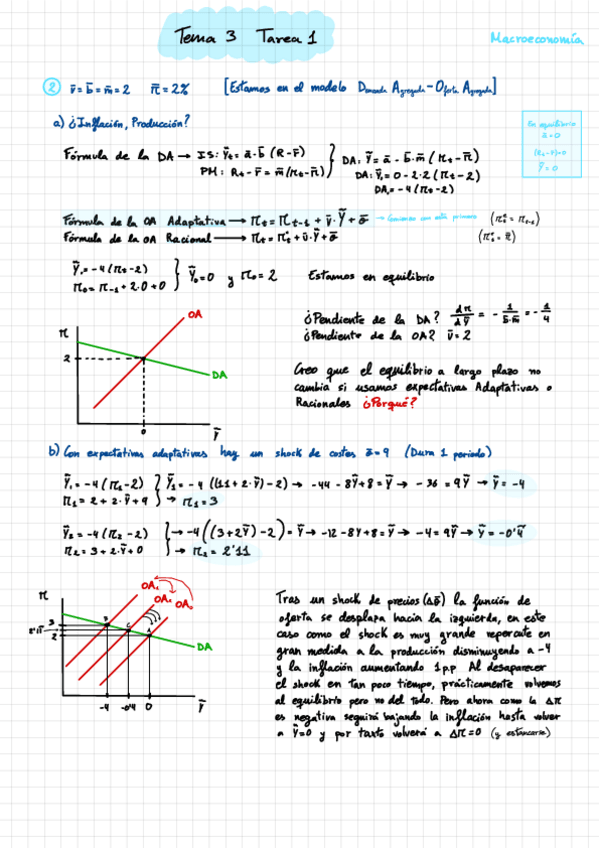 Tema 3 Tarea 1
Macroeconomía
② v̄ = b̄ = m̄ = 2 π̄ = 2% [Estamos en el modelo Demanda Agregada - Oferta Agregada]
En equilibrio
ā = 0
(Rt - r̄) = 0
Ỹ = 0
a) ¿Inflación, Producción?
Fórmula de la DA → IS: Ỹt = ā - b̄ (R - r̄)
PM: Rt - r̄ = m̄ (πt - π̄)
DA: Ỹ = ā - b̄·m̄ (πt - π̄)
DA: Ỹt = 0 - 2·2 (πt - 2)
DA = -4 (πt - 2)
Fórmula de la OA Adaptativa → πt = πt-1 + v̄·Ỹ + ō → Comienzo con esta primero (πt^e = πt-1)
Fórmula de la OA Racional → πt = πt^e + v̄·Ỹ + ō (πt^e = π̄)
Ỹt = -4 (πt - 2)
π0 = π-1 + 2·0 + 0
Ỹ0 = 0 y π0 = 2 Estamos en equilibrio
¿Pendiente de la DA? dπ/dỸ = - 1/b̄·m̄ = - 1/4
¿Pendiente de la OA? v̄ = 2
Creo que el equilibrio a largo plazo no
cambia si usamos expectativas Adaptativas o
Racionales ¿Porqué?
π
OA
2
DA
0
Ỹ
b) Con expectativas adaptativas hay un shock de costes ō = 9 (Dura 1 periodo)
Ỹ1 = -4 (π1 - 2)
π1 = 2 + 2·Ỹ + 9
Ỹ1 = -4 ((11 + 2·Ỹ) - 2) → -44 - 8Ỹ + 8 = Ỹ → -36 = 9Ỹ → Ỹ = -4
→ π1 = 3
Ỹ2 = -4 (π2 - 2)
π2 = 3 + 2·Ỹ + 0
→ -4 ((3 + 2Ỹ) - 2) = Ỹ → -12 - 8Ỹ + 8 = Ỹ → -4 = 9Ỹ → Ỹ = -0'4
→ π2 = 2'11
π
OA1
OA2
OA0
3
2'11
2
B
C
A
DA
-4
-0'4
0
Ỹ
Tras un shock de precios (Δō) la función de
oferta se desplaza hacia la izquierda, en este
caso como el shock es muy grande repercute en
gran medida a la producción disminuyendo a -4
y la inflación aumentando 1 p.p Al desaparecer
el shock en tan poco tiempo, prácticamente volvemos
al equilibrio pero no del todo. Pero ahora como la Δπ
es negativa seguirá bajando la inflación hasta volver
a Ỹ=0 y por tanto volverá a Δπ = 0 (y estancarse)